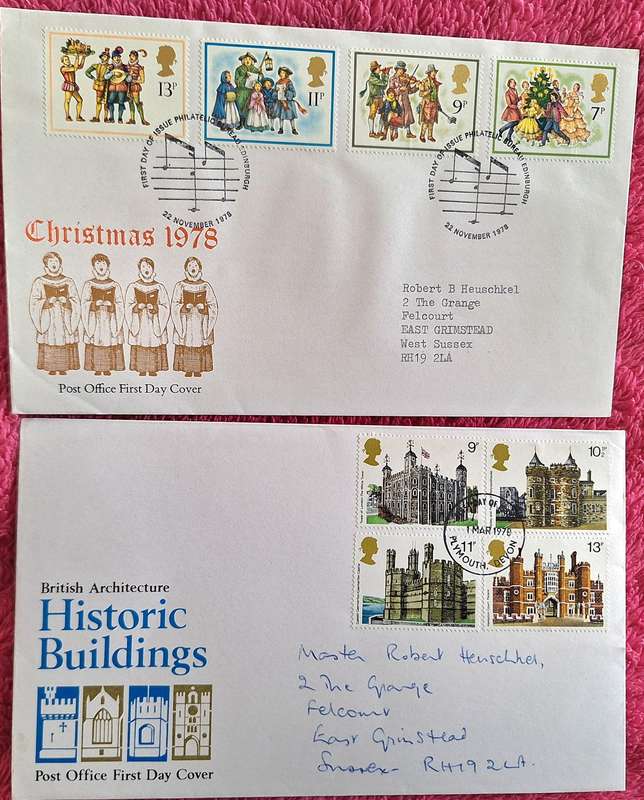 13P
11P
9P
7P
FIRST DAY OF ISSUE PHILATELIC BUREAU EDINBURGH
22 NOVEMBER 1978
FIRST DAY OF ISSUE PHILATELIC BUREAU EDINBURGH
22 NOVEMBER 1978
Christmas 1978
Robert B Heuschkel
2 The Grange
Felcourt
EAST GRIMSTEAD
West Sussex
RH19 2LA
Post Office First Day Cover
9P
10½P
DAY OF
1 MAR 1978
PLYMOUTH, DEVON
11P
13P
British Architecture
Historic
Buildings
Master Robert Heuschkel,
2 The Grange
Felcourt
East Grinstead
Sussex- RH19 2LA.
Post Office First Day Cover